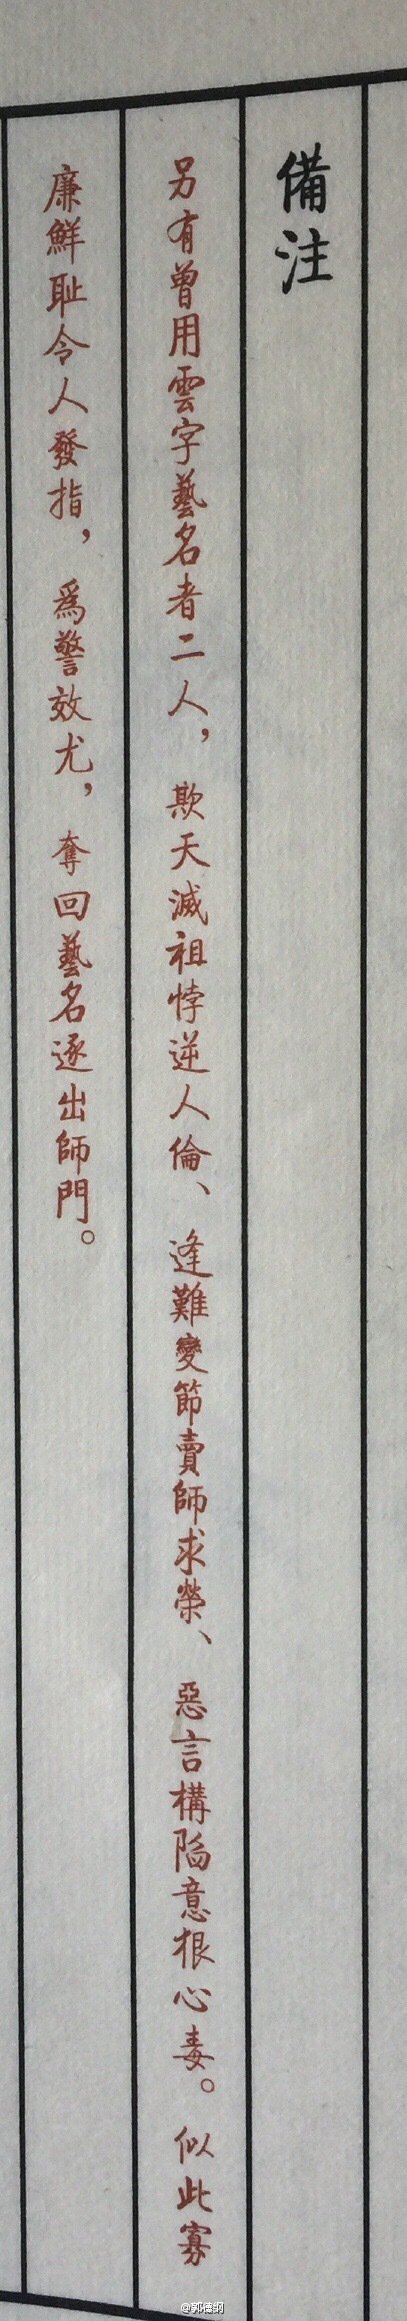 備注
另有曾用雲字藝名者二人，欺天滅祖悖逆人倫、逢難變節賣師求榮、惡言構陷意狠心毒。似此寡
廉鮮耻令人發指，為警效尤，奪回藝名逐出師門。
@郭德纲